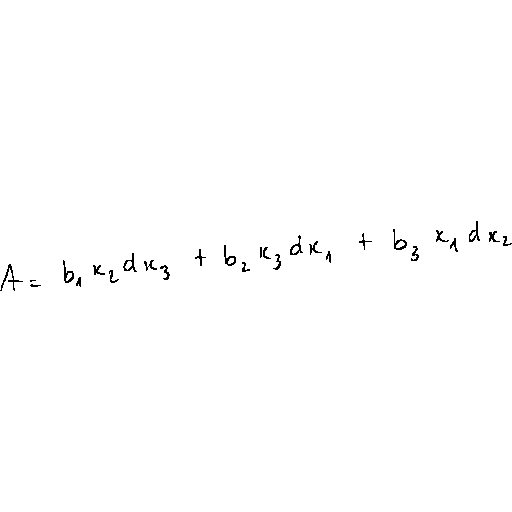 A = b₁ x₂ dx₃ + b₂ x₃ dx₁ + b₃ x₁ dx₂